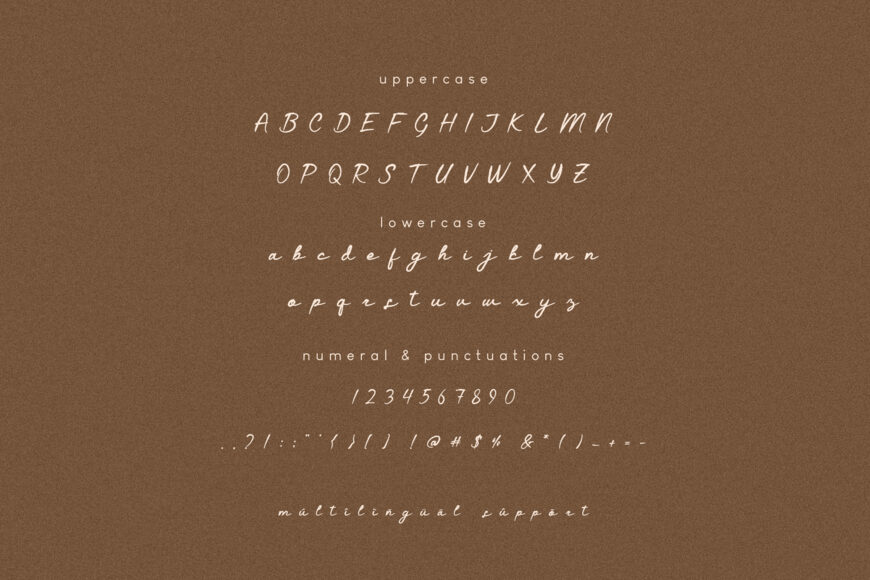 uppercase
A B C D E F G H I J K L M N
O P Q R S T U V W X Y Z
lowercase
a b c d e f g h i j k l m n
o p q r s t u v w x y z
numeral & punctuations
1 2 3 4 5 6 7 8 9 0
. , ? / : ; " ' { } [ ] ! @ # $ % & * ( ) _ + = -
mùltilingüäl süppört